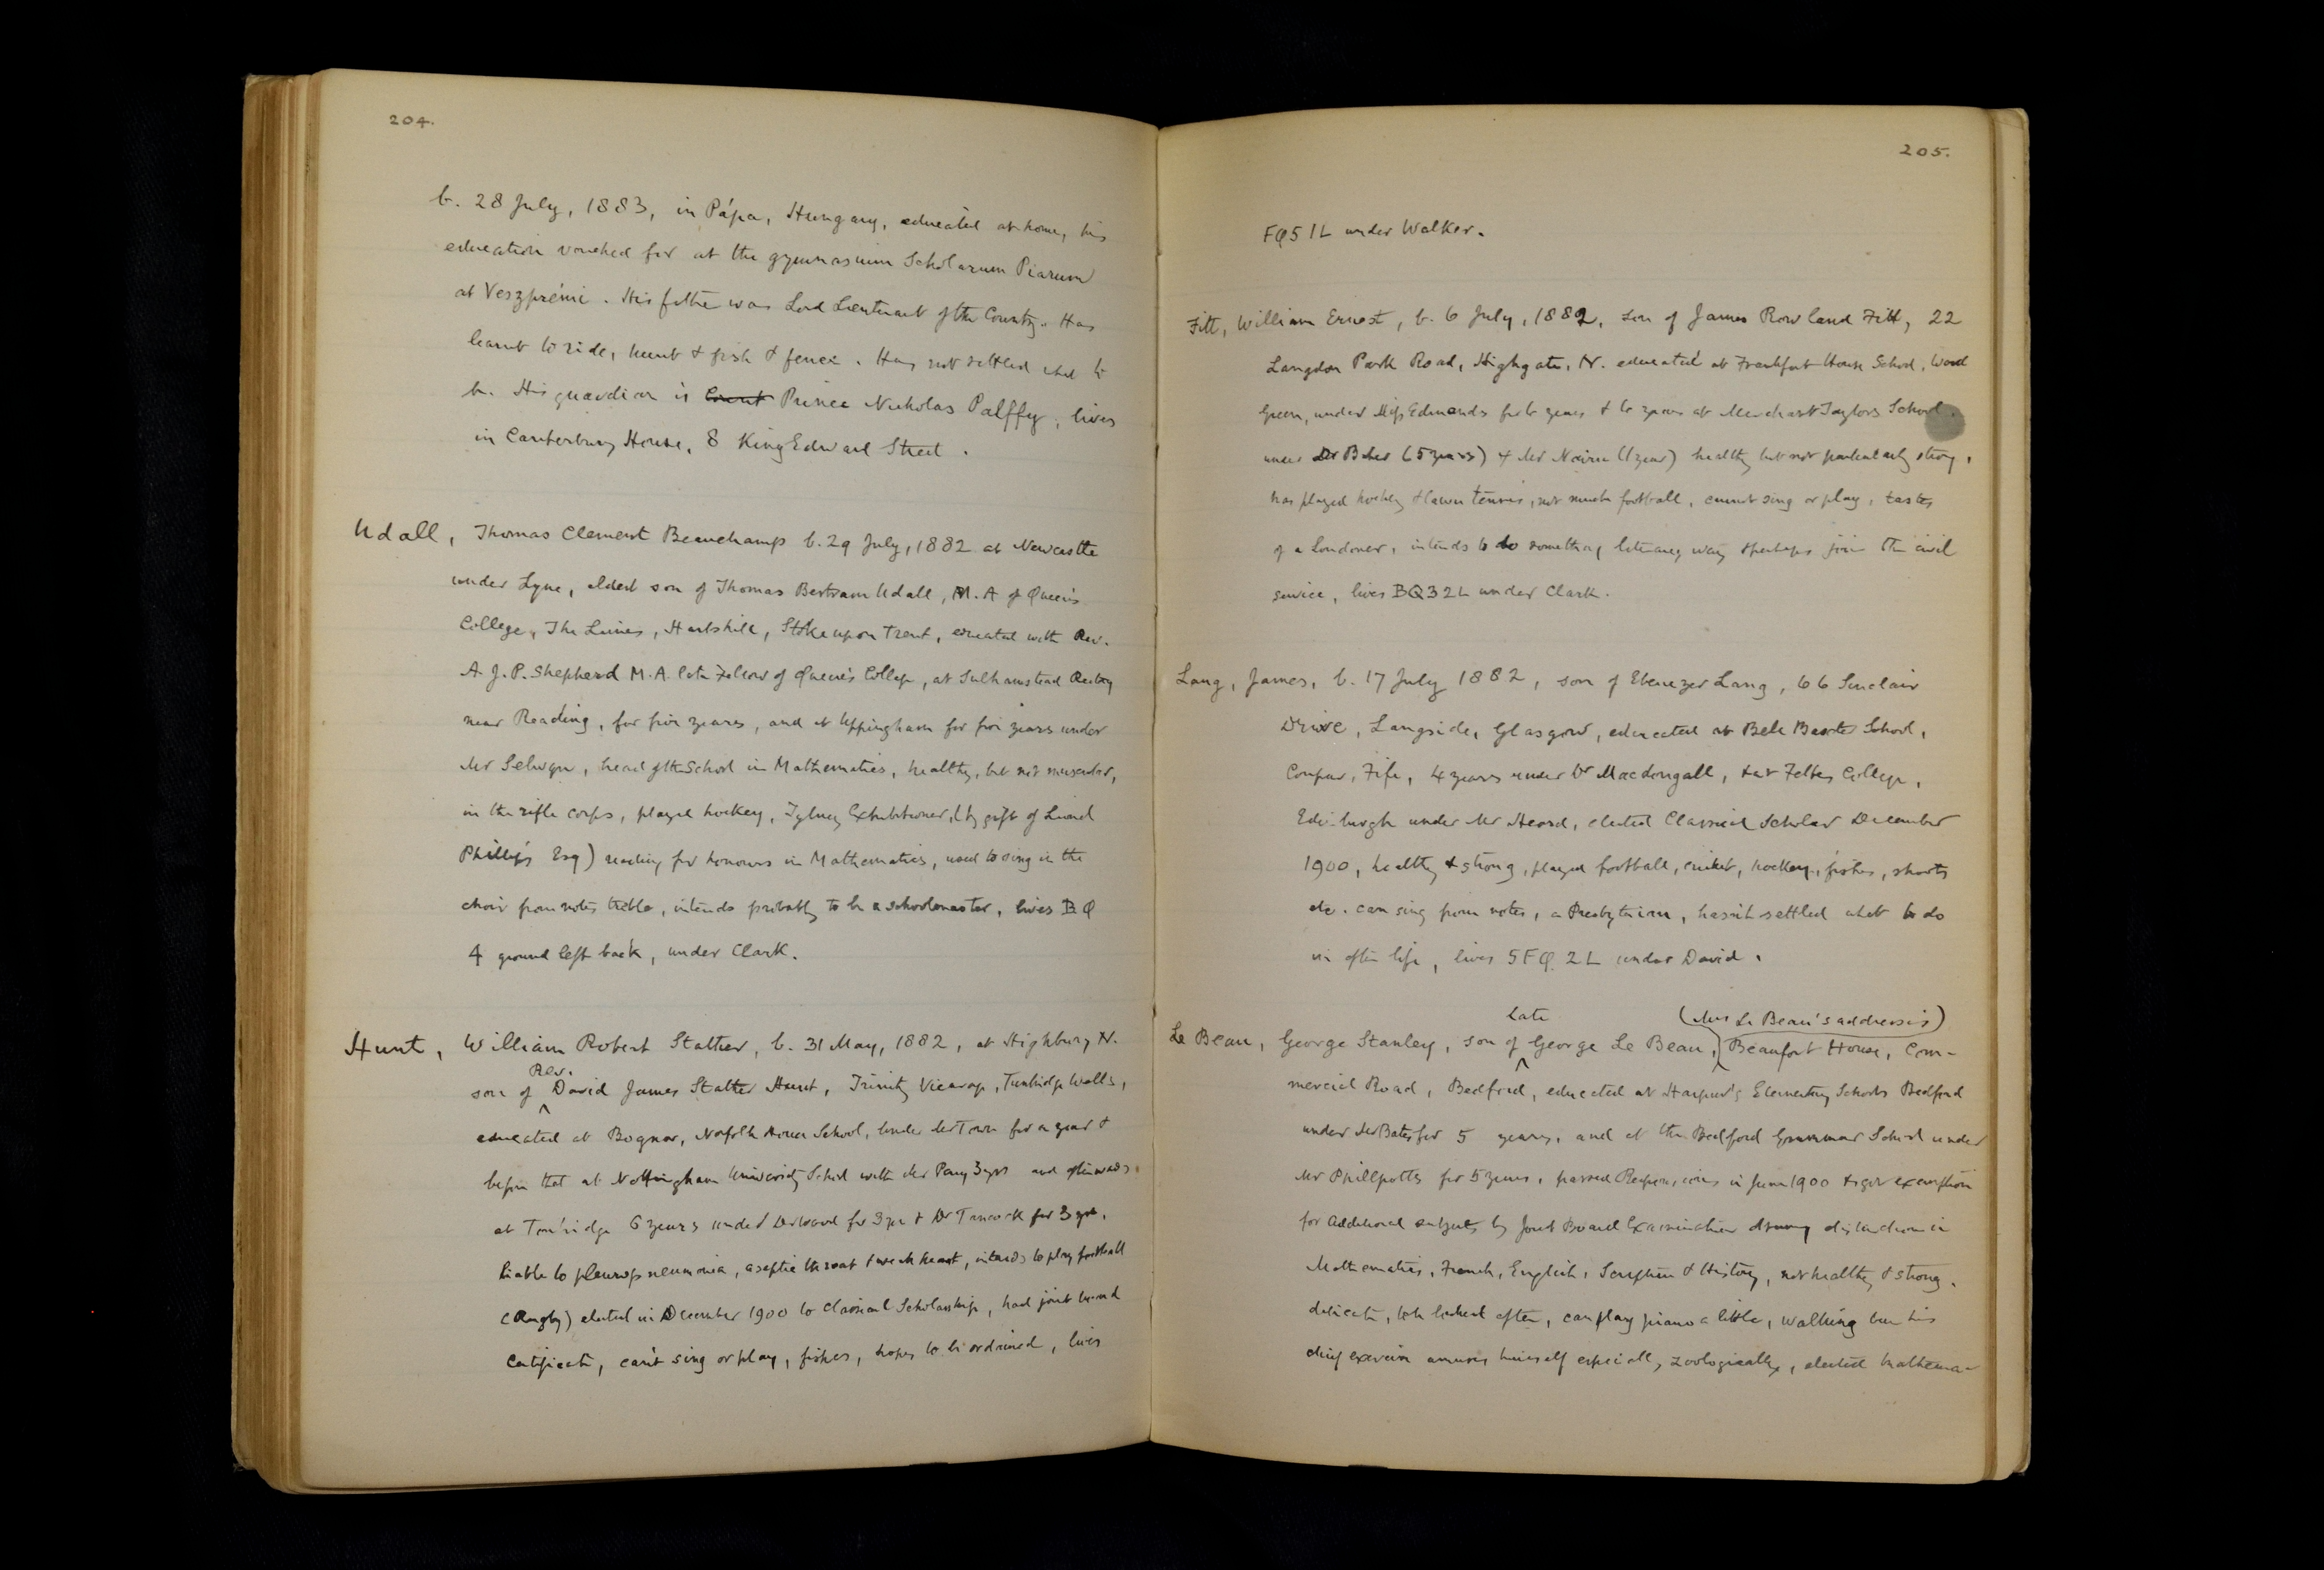 204.
b. 28 July, 1883, in Pápa, Hungary, educated at home, his
education vouched for at the gymnasium Scholarum Piarum
at Veszprémi. His father was Lord Lieutenant of the County. Has
learnt to ride, hunt & fish & fence. Has not settled what to
be. His guardian is Count Prince Nicholas Palffy, lives
in Canterbury House, 8 King Edward Street.
Udall, Thomas Clement Beauchamp b. 29 July, 1882 at Newcastle
under Lyne, eldest son of Thomas Bertram Udall, M.A of Queen's
College, The Limes, Hartshill, Stoke upon Trent, educated with Rev.
A. J. P. Shepherd M.A. late Fellow of Queen's College, at Sulhamstead Rectory
near Reading, for five years, and at Uppingham for five years under
Mr Selwyn, head of the School in Mathematics, healthy, but not muscular,
in the rifle corps, played hockey, Tylney Exhibitioner, (by gift of Lionel
Phillips Esq) reading for honours in Mathematics, used to sing in the
choir from notes treble, intends probably to be a schoolmaster, lives BQ
4 ground left back, under Clark.
Hunt, William Robert Stather, b. 31 May, 1882, at Highbury N.
son of Rev. David James Stather Hunt, Trinity Vicarage, Tunbridge Wells,
educated at Bognor, Norfolk House School, under Mr Town for a year &
before that at Nottingham University School with Mr Parry 3 yrs and afterwards
at Tonbridge 6 years under Dr Wood for 3 yrs & Dr Tancock for 3 yrs.
liable to pleuropneumonia, aseptic throat & weak heart, intends to play football
(Rugby) elected in December 1900 to Classical Scholarship, had joint board
Certificate, can't sing or play, fishes, hopes to be ordained, lives
205.
FQ5 1L under Walker.
Fitt, William Ernest, b. 6 July, 1882, son of James Rowland Fitt, 22
Langdon Park Road, Highgate, N. educated at Frankfort House School, Wood
Green, under Miss Edmands for 6 years & 6 years at Merchant Taylors School.
under Dr Baker (5 years) & Mr Nairn (1 year) healthy but not particularly strong,
has played hockey & lawn tennis, not much football, cannot sing or play, tastes
of a Londoner, intends to do something literary way & perhaps join the civil
service, lives BQ3 2L under Clark.
Lang, James, b. 17 July 1882, son of Ebenezer Lang, 66 Sinclair
Drive, Langside, Glasgow, educated at Bell Baxter School,
Coupar, Fife, 4 years under Dr Macdongall, & at Fettes College,
Edinburgh under Mr Heard, elected Classical Scholar December
1900, healthy & strong, played football, cricket, hockey, fishes, shoots
etc. can sing from notes, a Presbyterian, hasn't settled what to do
in after life, lives 5FQ. 2L under David.
Le Beau, George Stanley, son of late George Le Beau, (Mrs Le Beau's address is) Beaufort House, Com-
mercial Road, Bedford, educated at Harpur's Elementary Schools Bedford
under Mr Bates for 5 years, and at the Bedford Grammar School under
Mr Phillpotts for 5 years, passed Responsions in June 1900 & got exemption
for Additional subjects by Joint Board Examination distinction in
Mathematics, French, English, Scripture & History, not healthy & strong.
delicate, to be looked after, can play piano a little, walking been his
chief exercise amuses himself especially zoologically, elected Mathema-